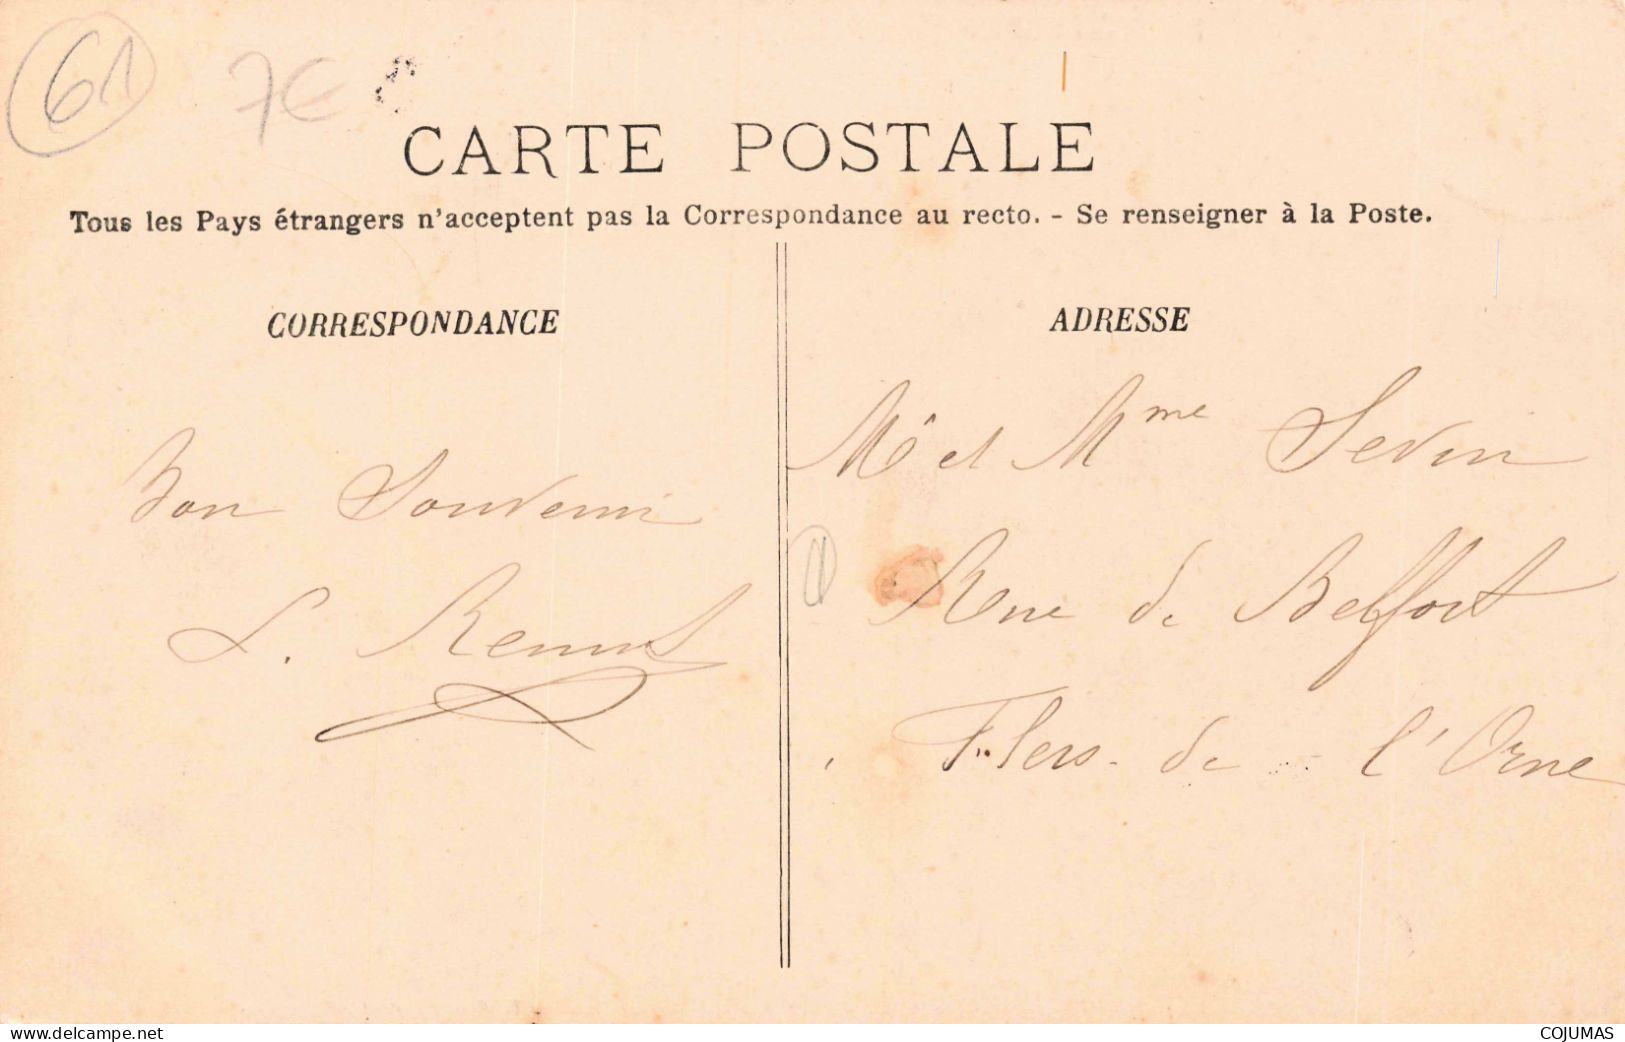 61
7€
CARTE POSTALE
Tous les Pays étrangers n'acceptent pas la Correspondance au recto. - Se renseigner à la Poste.
CORRESPONDANCE
Bon Souvenir
L.
ADRESSE
Mr et Mme Sevin
Rue de Belfort
Flers - de - l'Orne
www.delcampe.net
COJUMAS